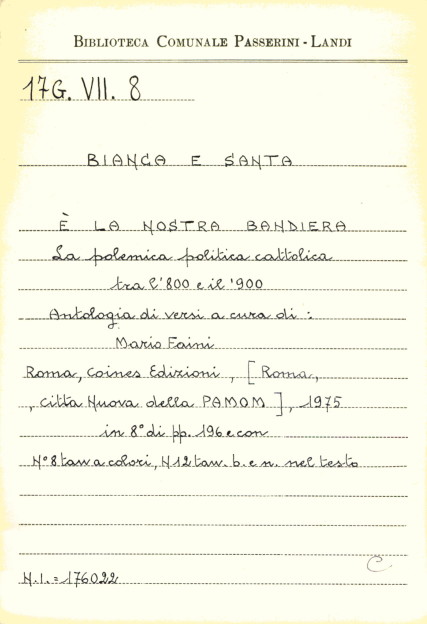 BIBLIOTECA COMUNALE PASSERINI - LANDI
17G. VII. 8
BIANCA E SANTA
È LA NOSTRA BANDIERA
La polemica politica cattolica
tra l'800 e il '900
Antologia di versi a cura di :
Mario Faini
Roma, Coines Edizioni, [Roma,
, Città Nuova della PAMOM], 1975
in 8° di pp. 196 e con
N° 8 tav a colori, N 12 tav. b. e n. nel testo
C
N.I. = 176022